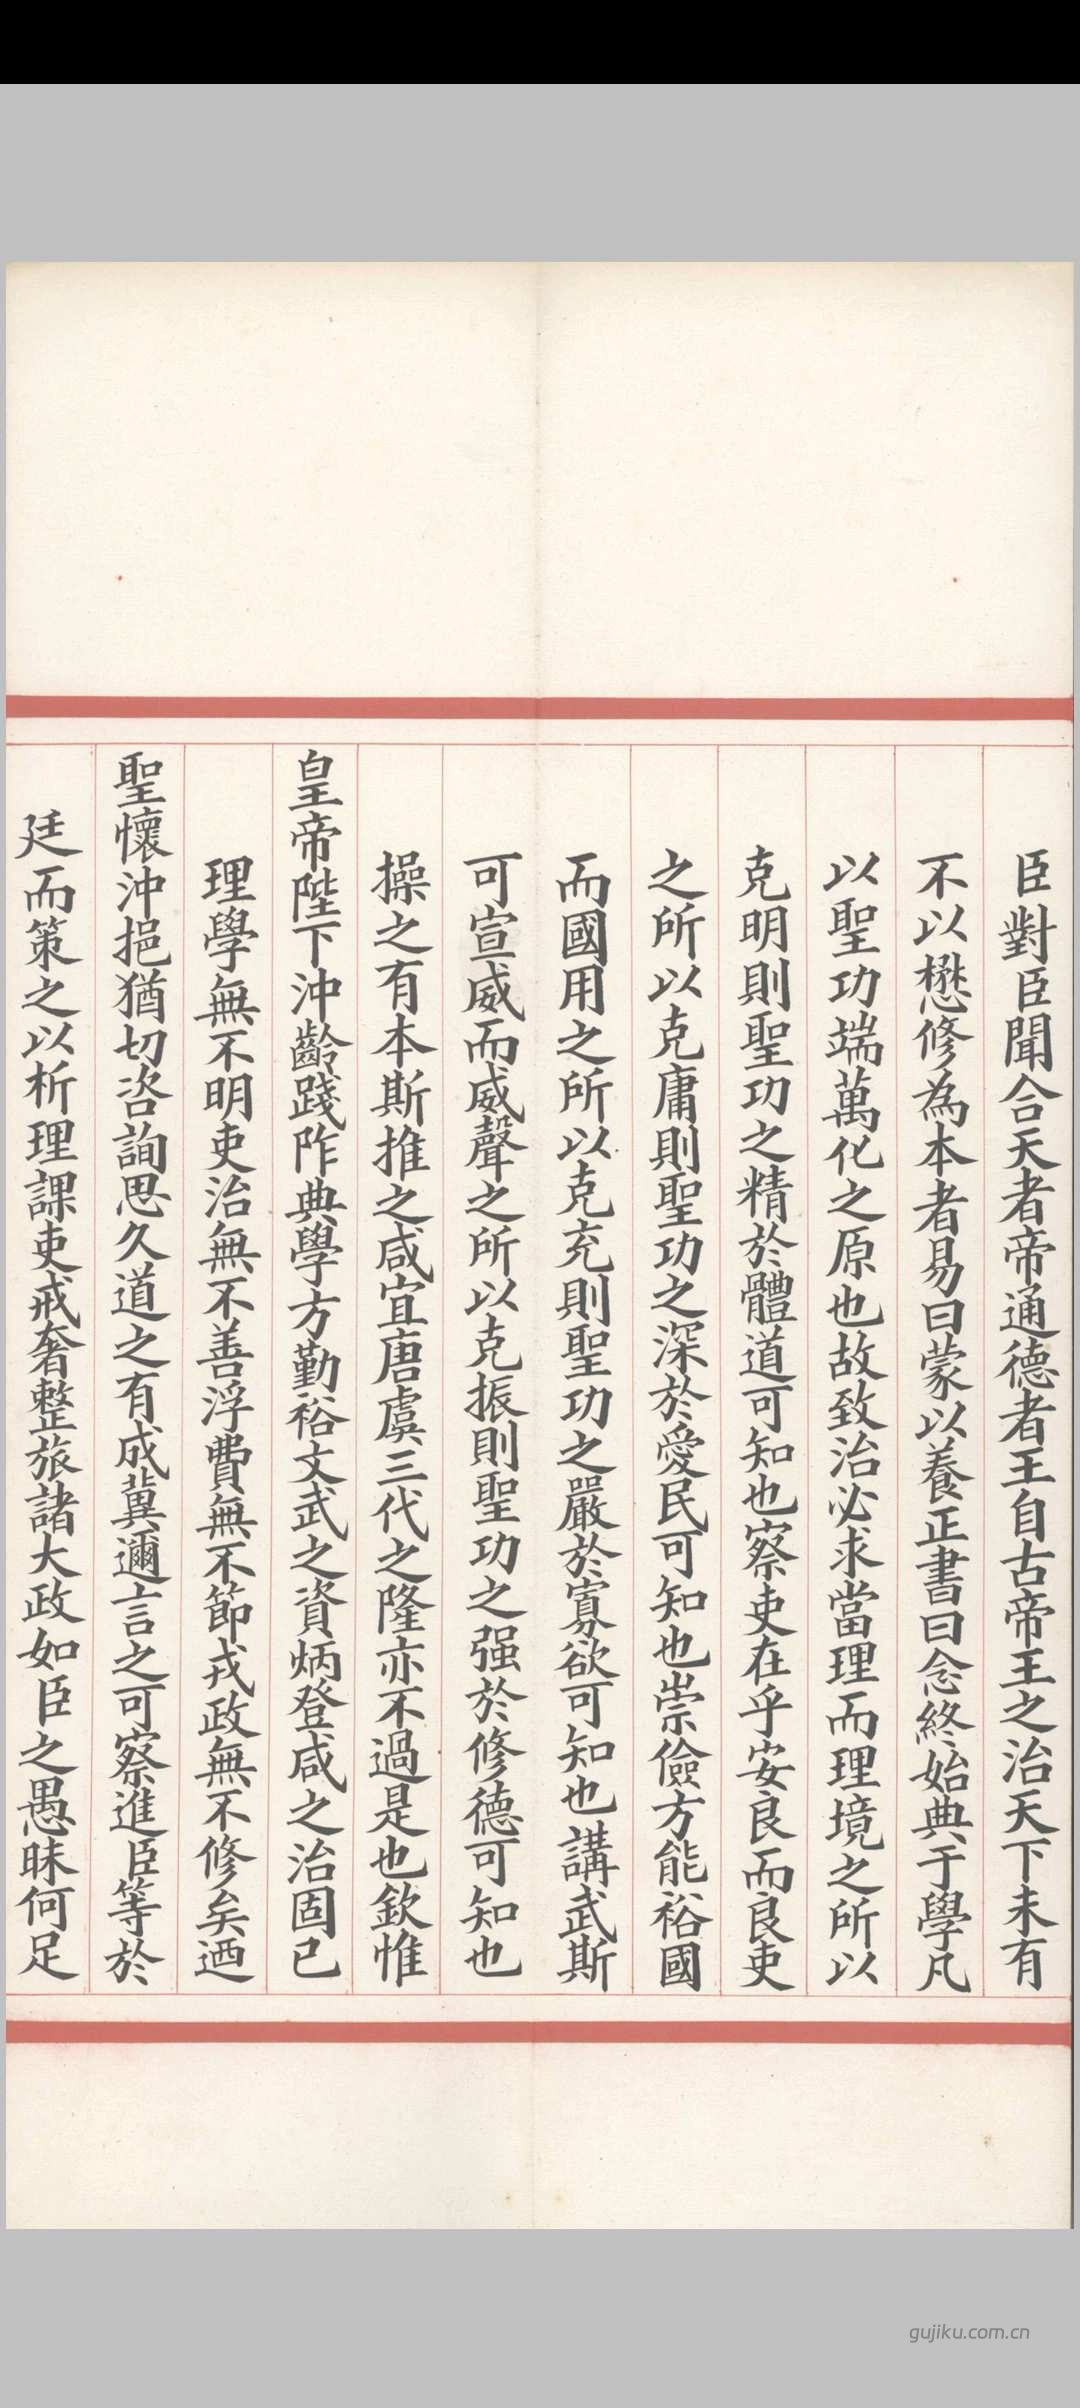 臣對臣聞合天者帝通德者王自古帝王之治天下未有
不以懋修為本者易曰蒙以養正書曰念終始典于學凡
以聖功端萬化之原也故致治必求當理而理境之所以
克明則聖功之精於體道可知也察吏在乎安良而良吏
之所以克庸則聖功之深於愛民可知也崇儉方能裕國
而國用之所以克充則聖功之嚴於寡欲可知也講武斯
可宣威而威聲之所以克振則聖功之强於修德可知也
操之有本斯推之咸宜唐虞三代之隆亦不過是也欽惟
皇帝陛下沖齡踐阼典學方勤裕文武之資炳登咸之治固已
理學無不明吏治無不善浮費無不節戎政無不修矣迺
聖懷沖挹猶切咨詢思久道之有成冀邇言之可察進臣等於
廷而策之以析理課吏戒奢整旅諸大政如臣之愚昧何足
gujiku.com.cn